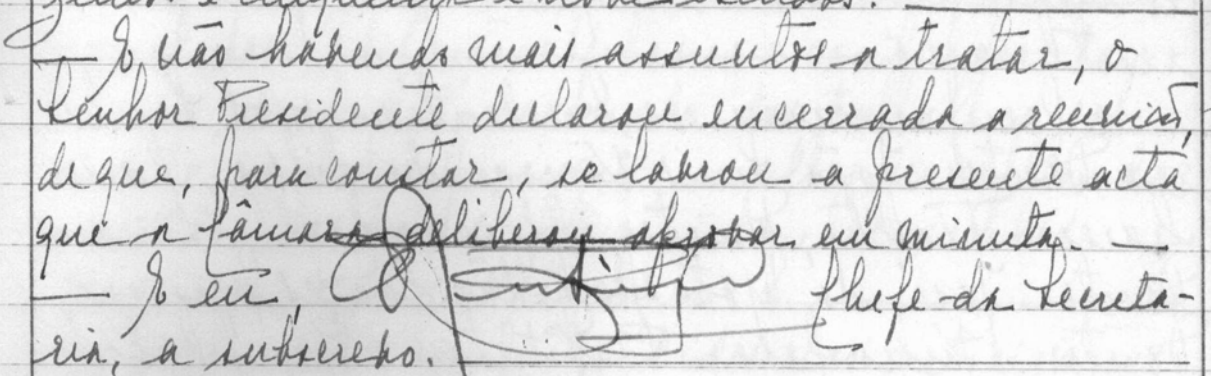 — E não havendo mais assuntos a tratar, o
Senhor Presidente declarou encerrada a reunião,
de que, para constar, se lavrou a presente acta
que a Câmara deliberou aprovar em minuta. —
— E eu, Chefe da Secreta-
ria, a subscrevo.